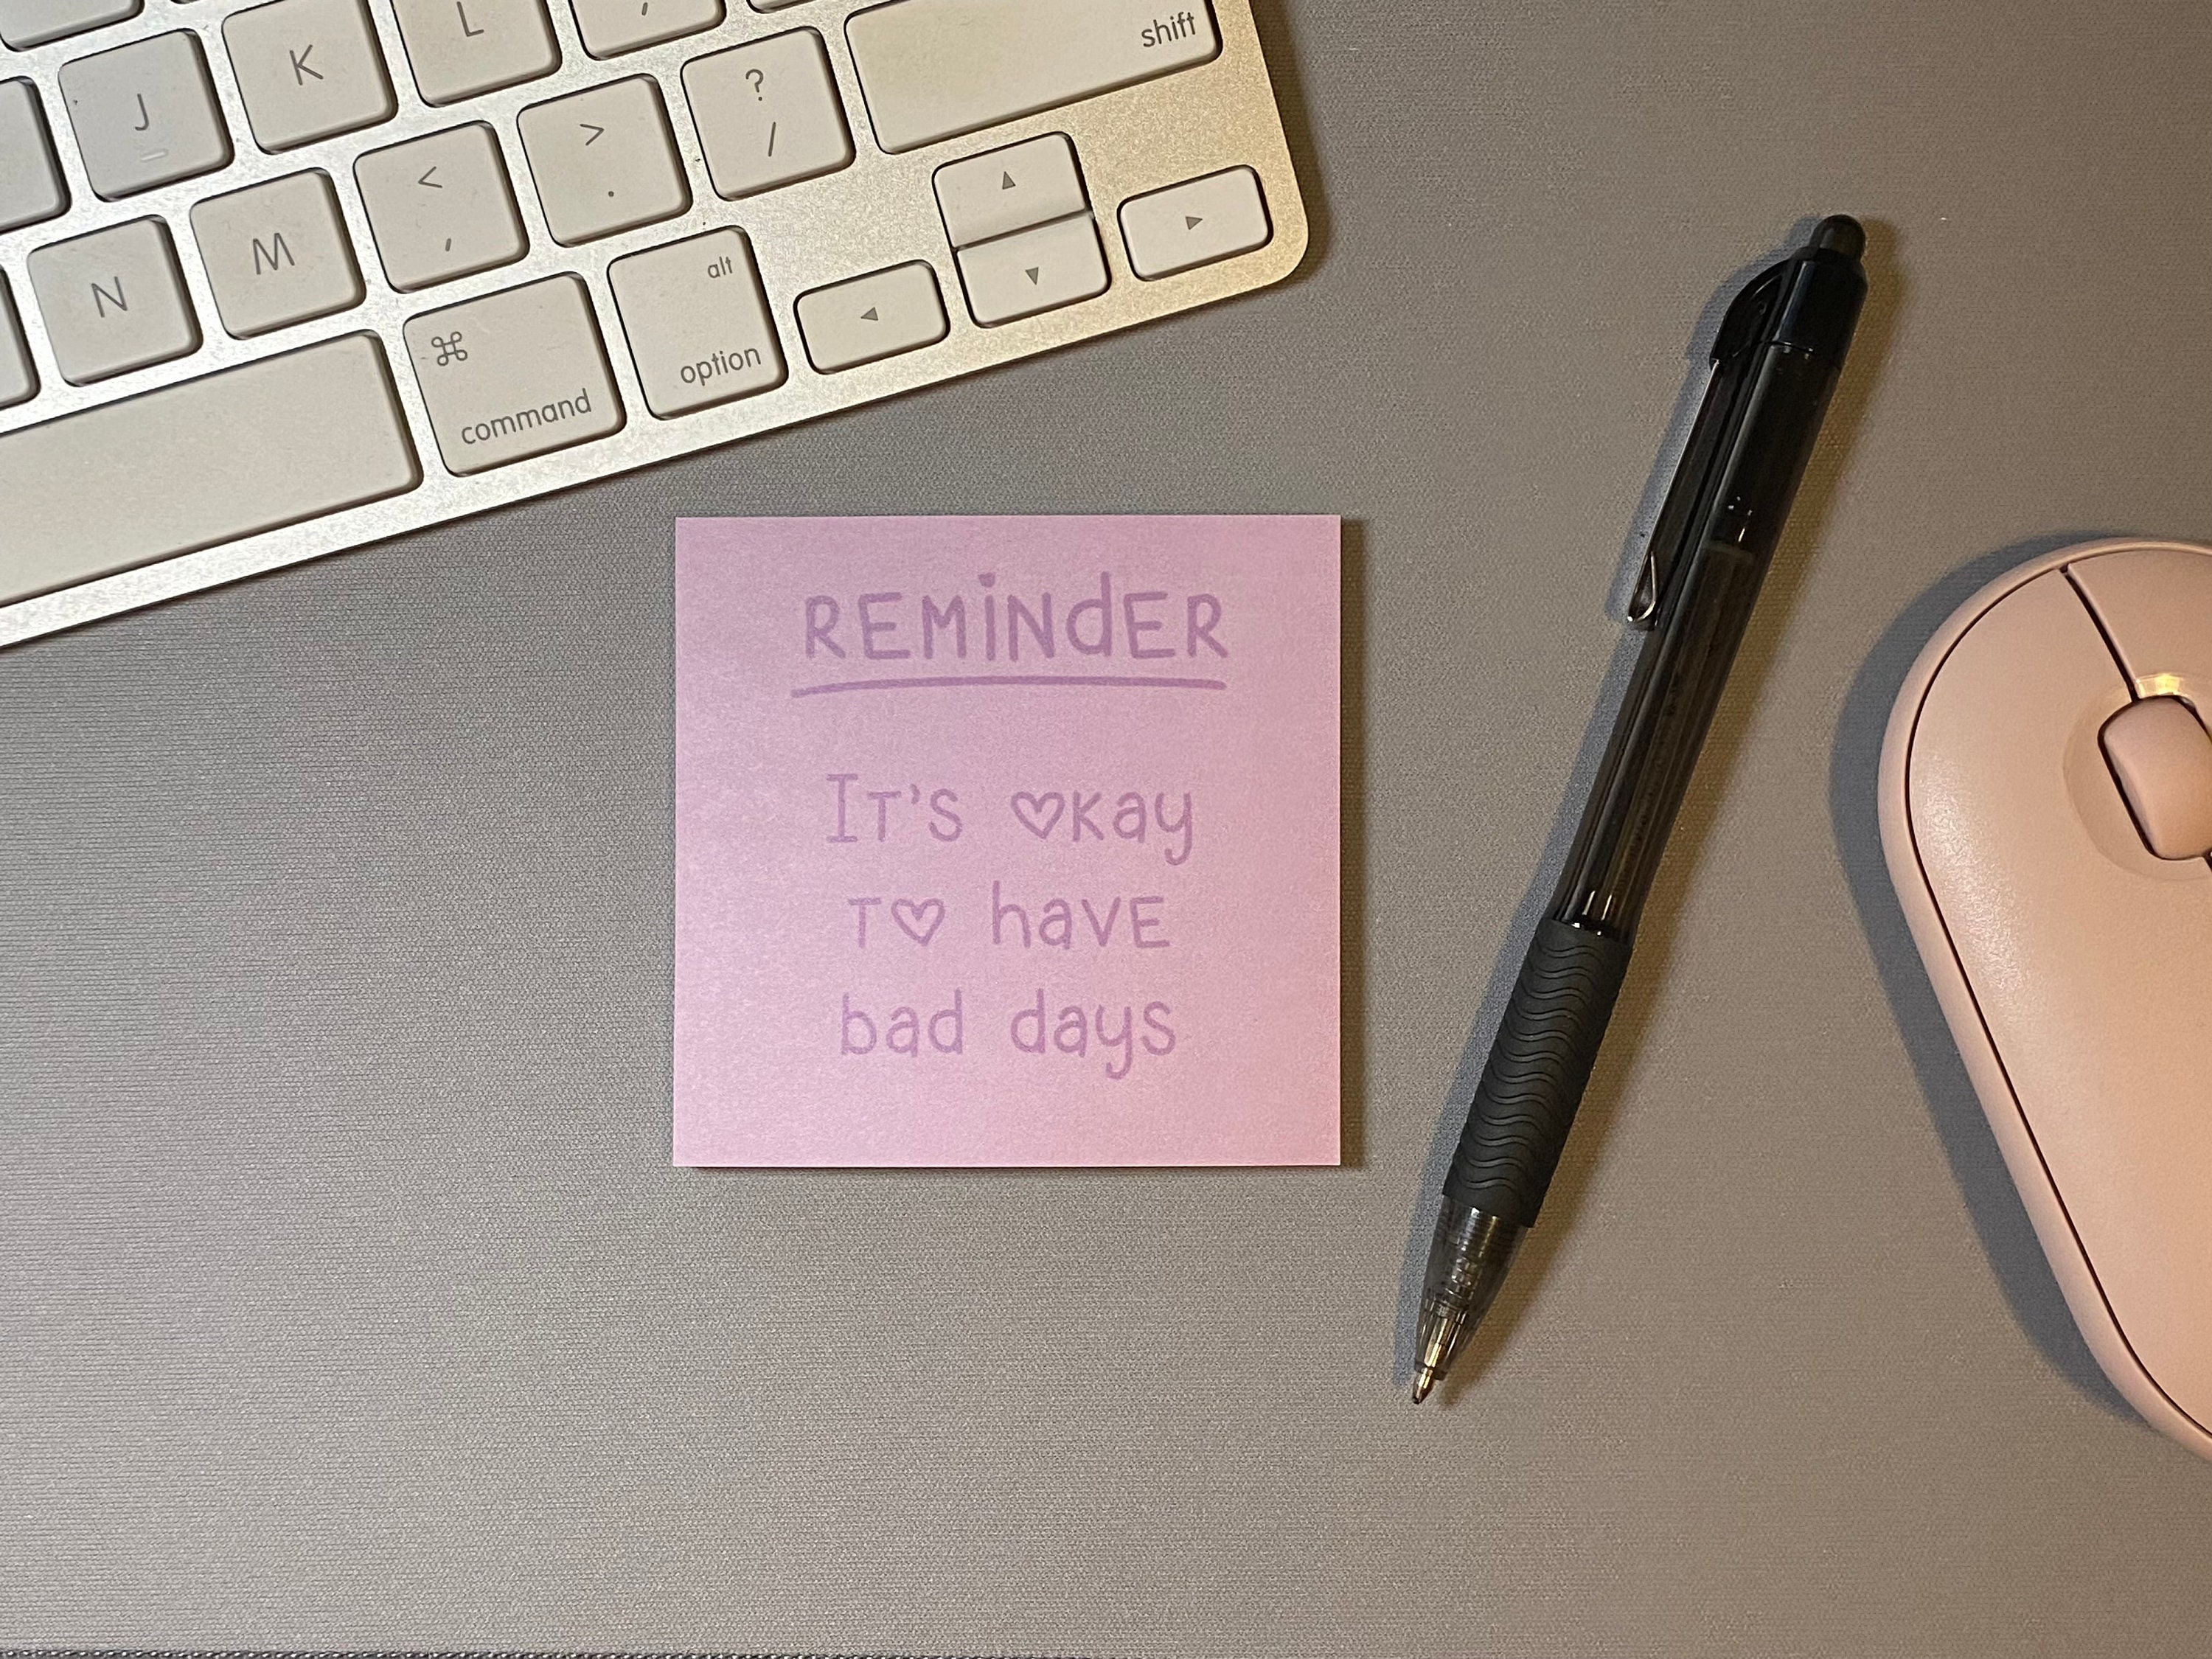 L
K
shift
J
?
/
>
.
<
,
M
N
alt
option
⌘
command
▲
▼
◄
►
REMINdER
IT'S ♡kay
T♡ haVE
bad days